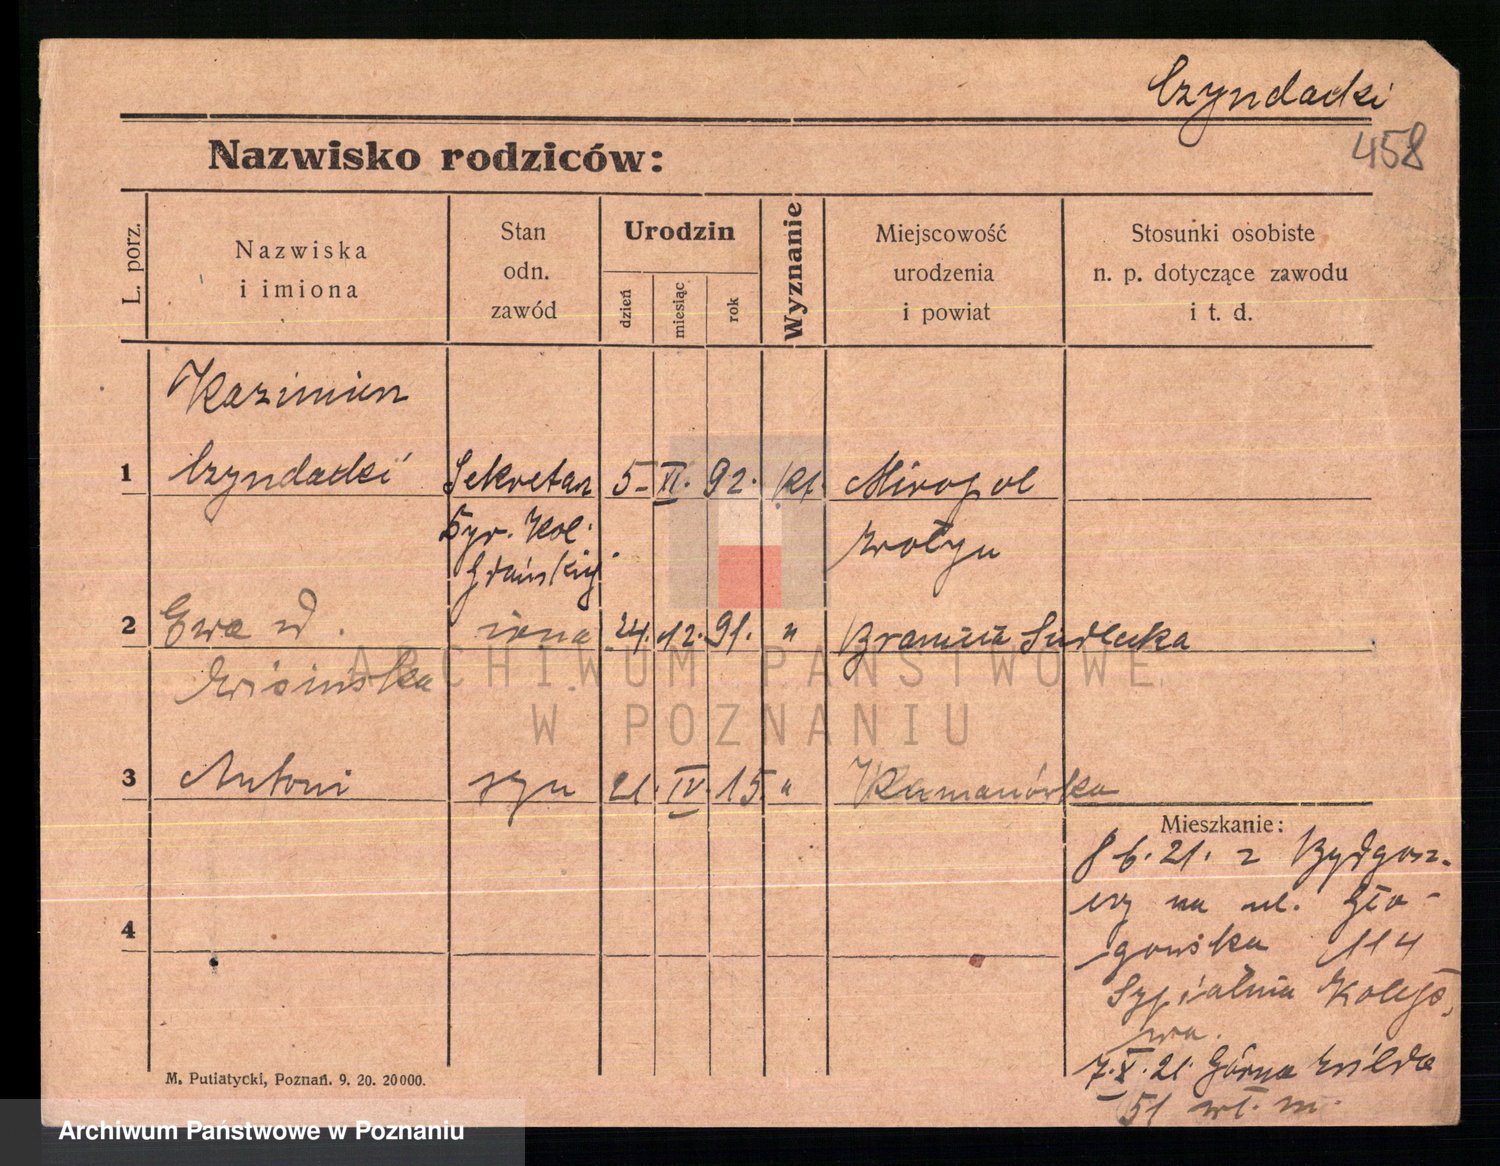 Czyndacki
458
Nazwisko rodziców:
L. porz.
Nazwiska
i imiona
Stan
odn.
zawód
Urodzin
dzień
miesiąc
rok
Wyznanie
Miejscowość
urodzenia
i powiat
Stosunki osobiste
n. p. dotyczące zawodu
i t. d.
Kazimierz
1 Czyndacki Sekretarz 5 XI. 92. kt. Miropol
Dyr. Kol. Wołyń
Gdańskiej
2 Ewa żona 24. 12. 91. "
3 Antoni syn 21. IV. 15. " Kumanówka
Mieszkanie:
8 6. 21. z Bydgosz-
czy na ul. Gło-
4
gowska 114
Sypialnia Kolejo,
wa.
7. X. 21. Górna Wilda
51 wł. m.
M. Putiatycki, Poznań. 9. 20. 20000.
ARCHIWUM PAŃSTWOWE
W POZNANIU
Archiwum Państwowe w Poznaniu